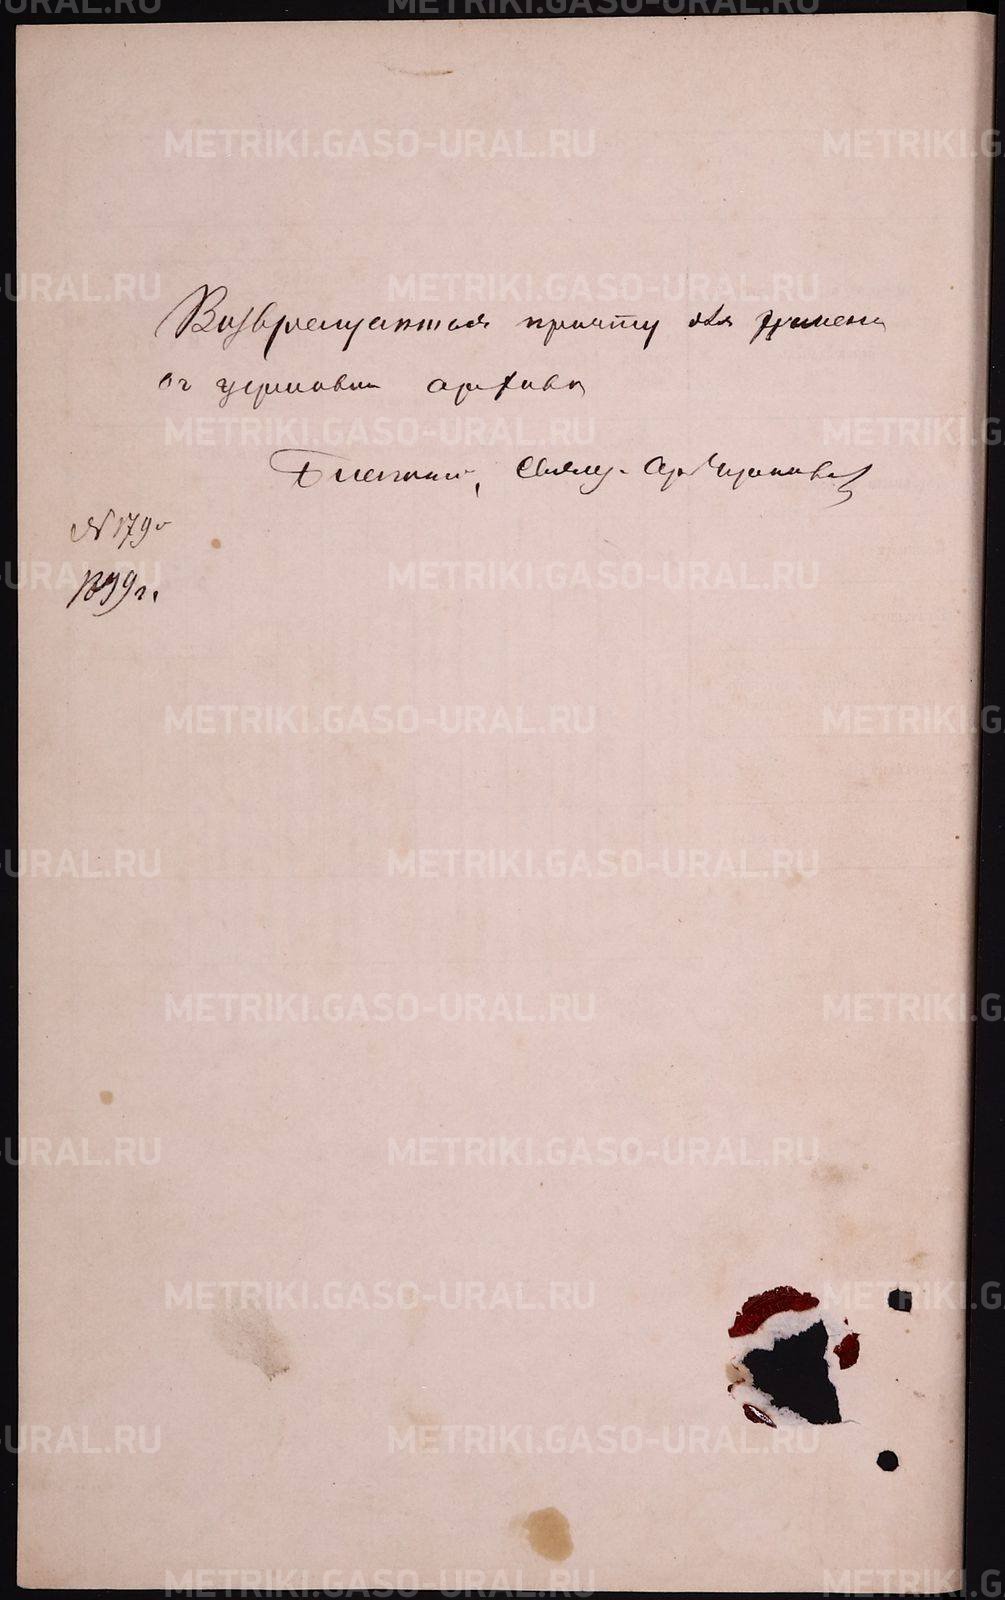 METRIKI.GASO-URAL.RU
Возвращается причту для хранения
въ церковномъ архивѣ
Благочинный, Священ.
№ 179
1899 г.